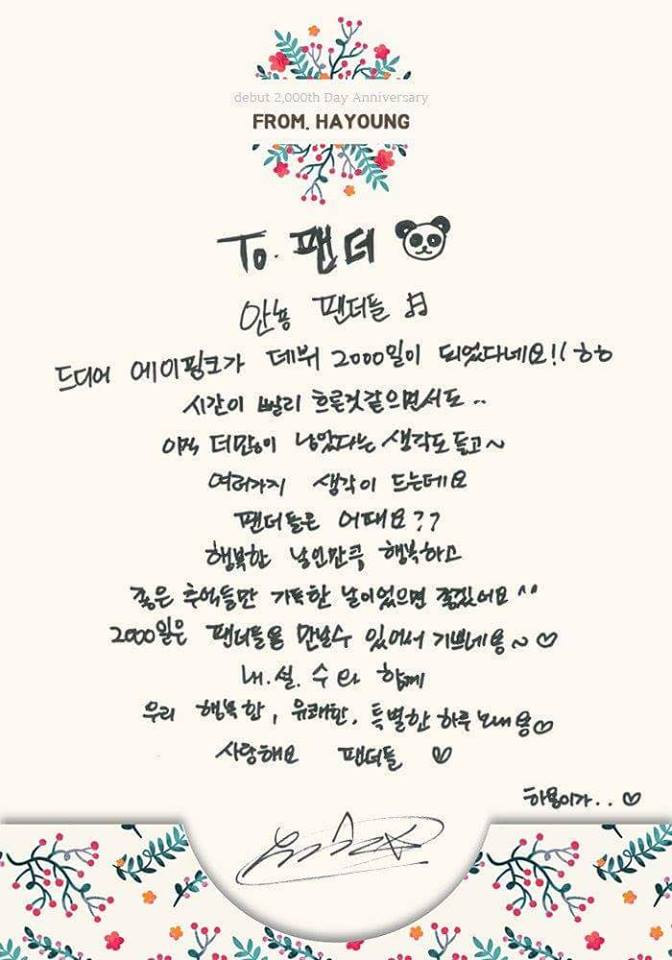 debut 2,000th Day Anniversary
FROM. HAYOUNG
To. 팬더
안뇽 팬더들 ♫
드디어 에이핑크가 데뷔 2000일이 되었다네요!! ㅎㅎ
시간이 빨리 흐른것같으면서도..
아직 더많이 남았다는 생각도 들고~
여러가지 생각이 드는데요
팬더들은 어때요??
행복한 날인만큼 행복하고
좋은 추억들만 가득한 날이었으면 좋겠어요 ^^
2000일은 팬더들을 만날수 있어서 기쁘네용~ ♡
내.설.수 와 함께
우리 행복한, 유쾌한, 특별한 하루 보내용♡
사랑해요 팬더들 ♡
하용이가.. ♡